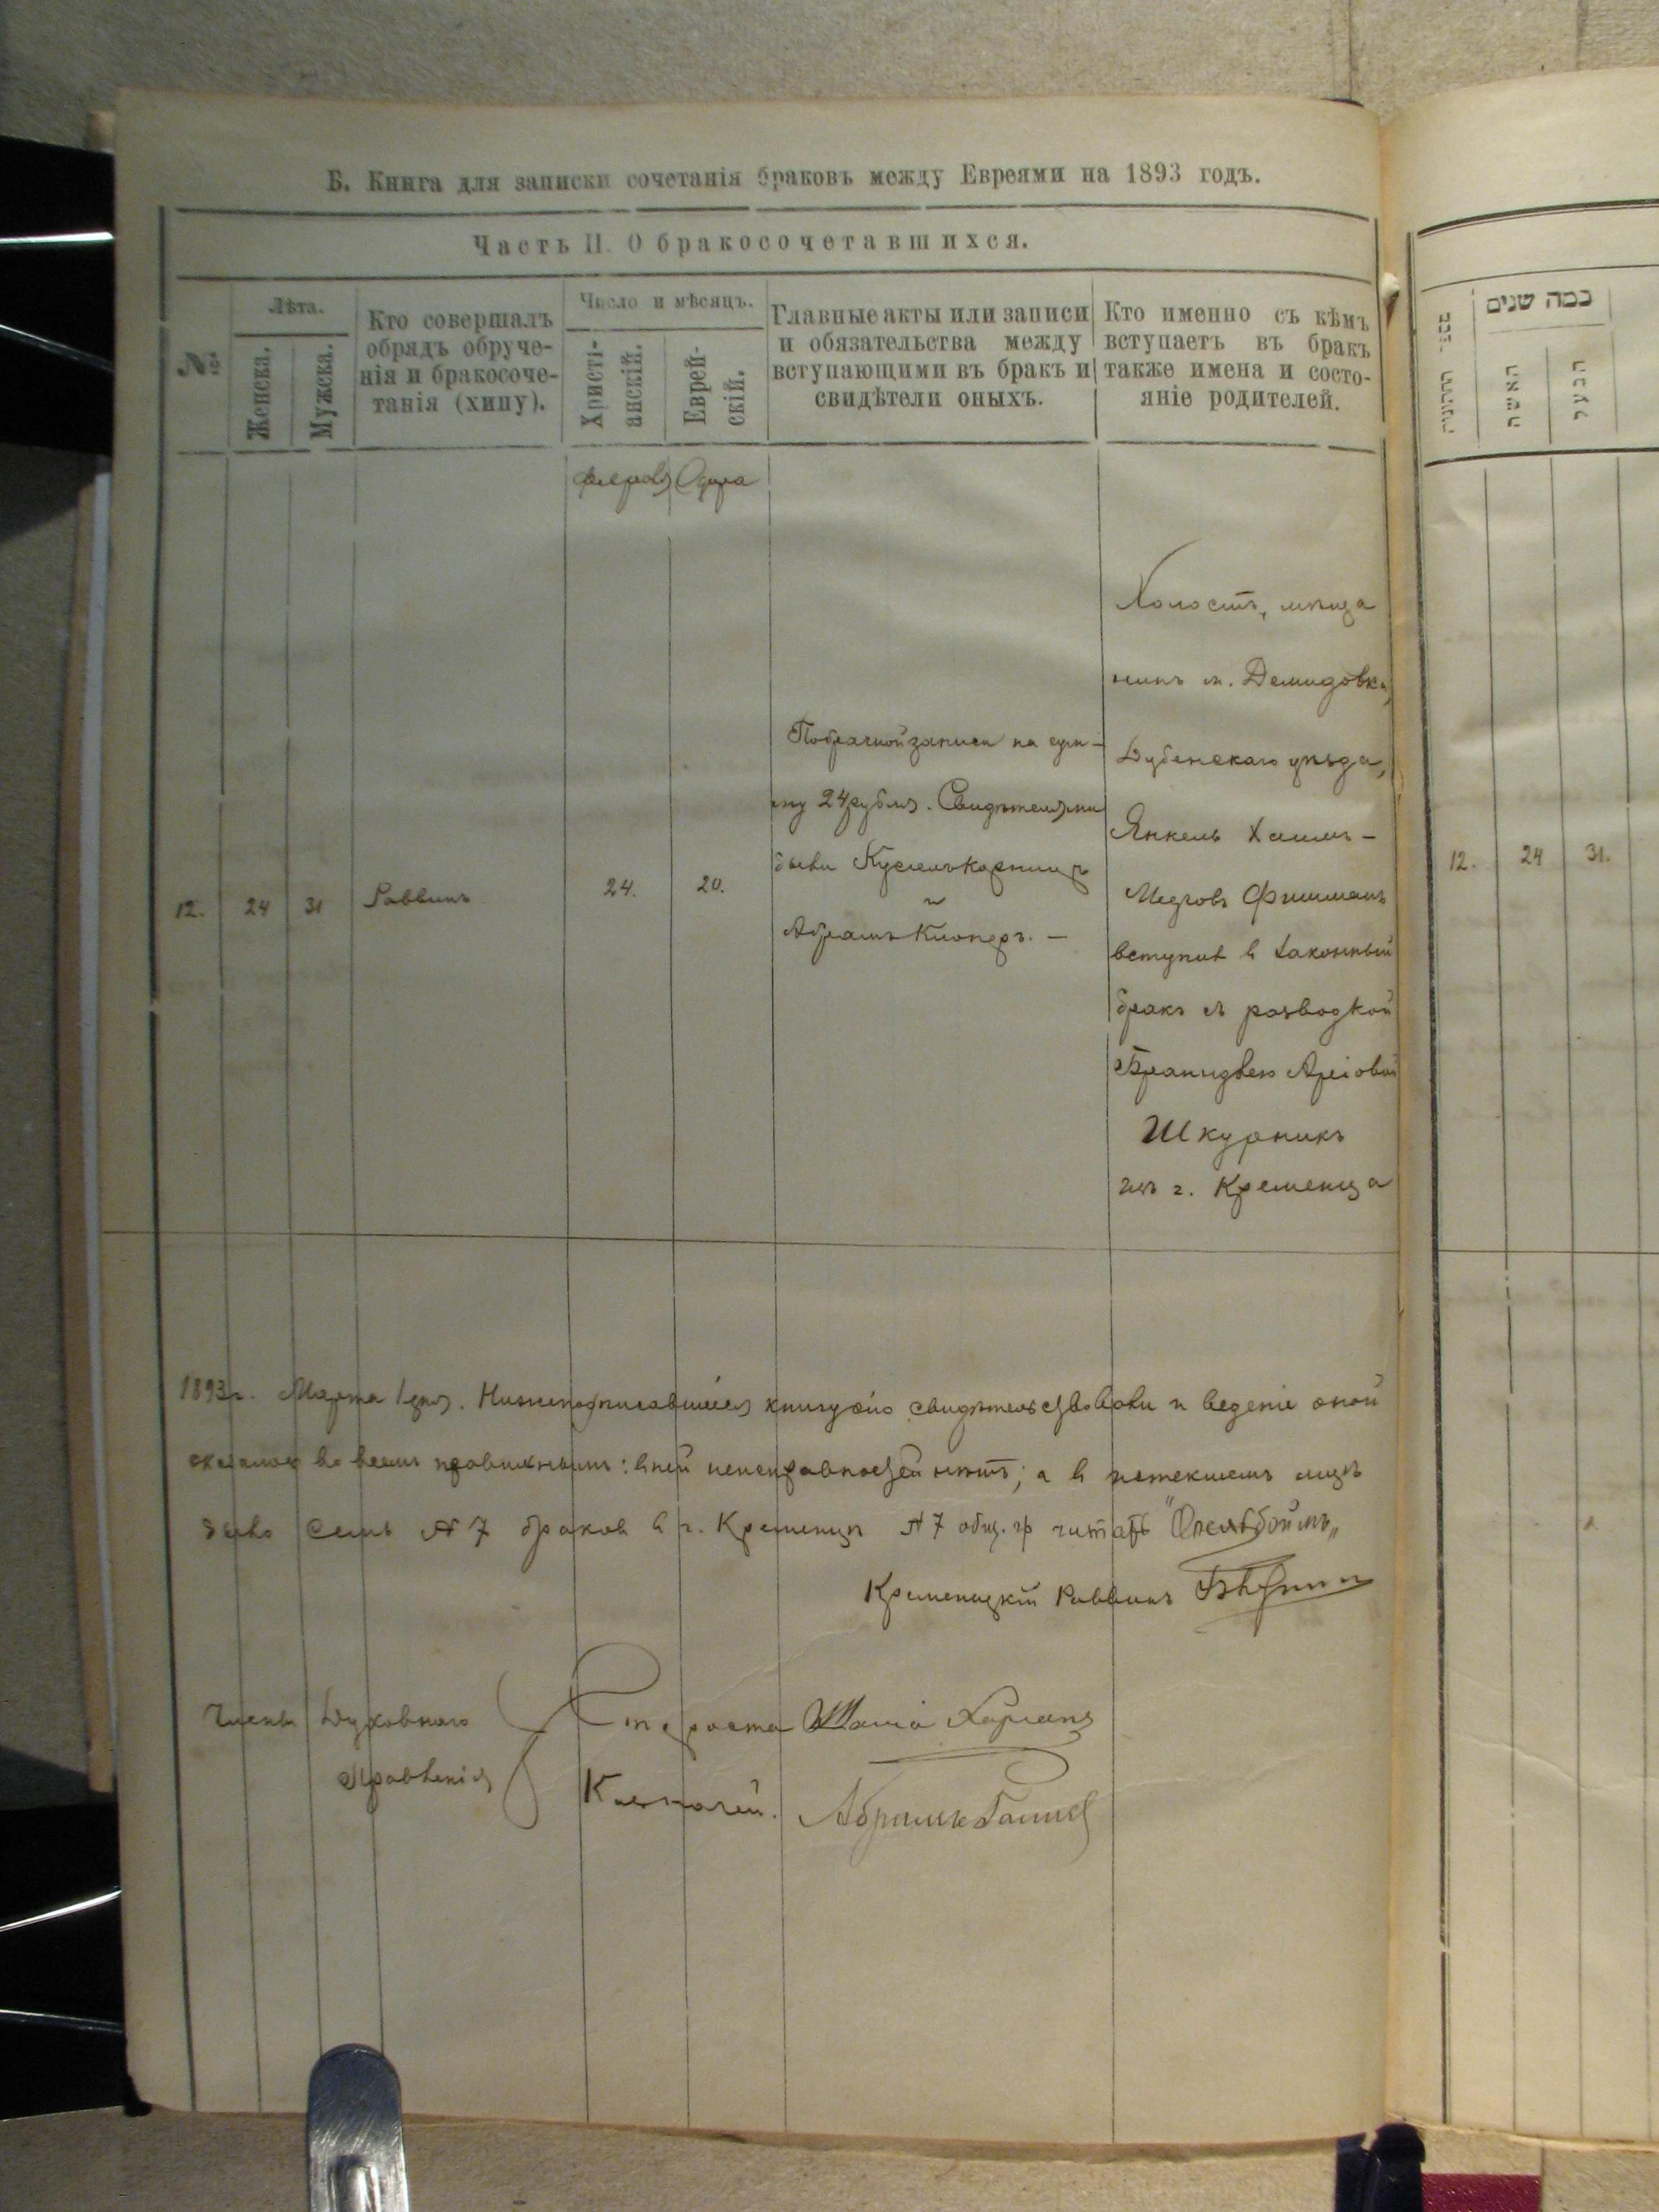 Б. Книга для записки сочетанія браковъ между Евреями на 1893 годъ.
Часть II. О бракосочетавшихся.
№
Лѣта.
Женска.
Мужска.
Кто совершалъ
обрядъ обруче-
нія и бракосоче-
танія (хипу).
Число и мѣсяцъ.
Христі-
анскій.
Еврей-
скій.
Главные акты или записи
и обязательства между
вступающими въ бракъ и
свидѣтели оныхъ.
Кто именно съ кѣмъ
вступаетъ въ бракъ
также имена и состо-
яніе родителей.
12.
24
31
Раввинъ
24.
20.
записи на сум-
му 24 рубля. Свидѣтелями
были
и
Абрамъ
Холостъ, мѣща
нинъ м. Демидовки,
Дубенскаго уѣзда,
Янкель Хаимъ-
Фишманъ
вступил в законный
бракъ съ разводкой
Шкурникъ
изъ г. Кременца
1893 г. Марта 1 дня. Нижеподписавшіеся книгу сію свидѣтельствовали и веденіе оной
оказалось во всемъ правильнымъ: въ ней неисправностей нѣтъ; а в истекшемъ мцѣ
было семь № 7 браков в г. Кременцѣ № 7 общ. гр читать
Кременецкій Раввинъ
Члены Духовнаго
Правленія
Староста
Казначей.
כמה שנים
האשה
הבעל
12.
24
31.